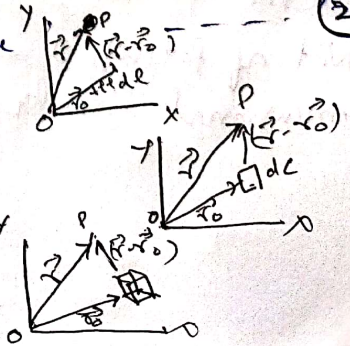 (2
Y P
r⃗ (r⃗-r⃗₀)
r⃗₀ dl
O X
P
Y r⃗ (r⃗-r⃗₀)
dl
r⃗₀
O
P
r⃗ (r⃗-r⃗₀)
r⃗₀
O